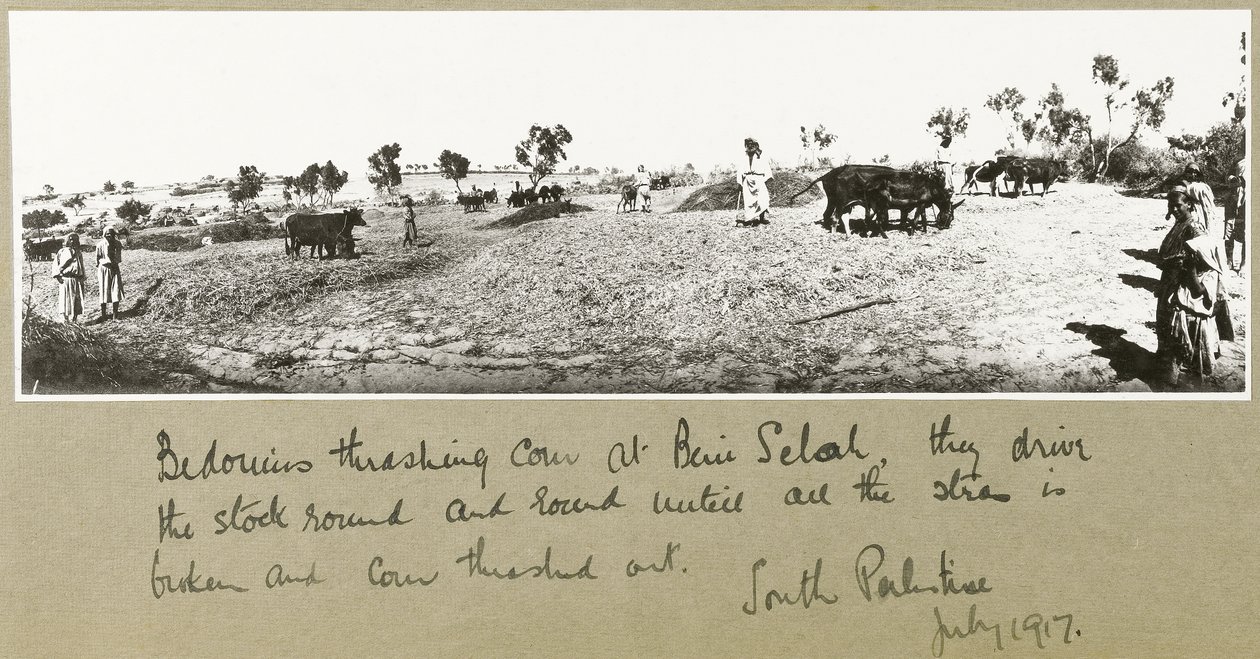 Bedouins thrashing corn at Beni Selah, they drive
the stock round and round untill all the straw is
broken and corn thrashed out.
South Palestine
July 1917.